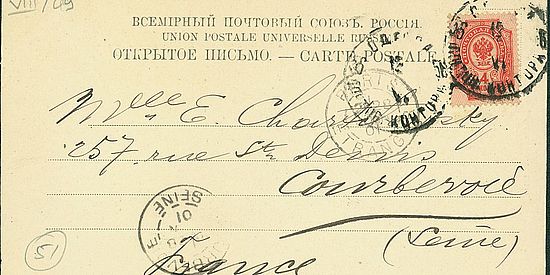 VIII/09
ВСЕМІРНЫЙ ПОЧТОВЫЙ СОЮЗЪ. РОССІЯ.
UNION POSTALE UNIVERSELLE RUSSIE
ОТКРЫТОЕ ПИСЬМО. — CARTE POSTALE
ОДЕССА
КОНТОРА
4
Mlle E.
257, rue St Denis
Courbevoie
(Seine)
France
SEINE
01
51